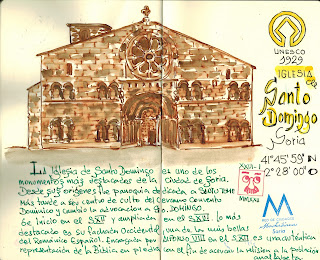 UNESCO
1929
IGLESIA
DE
Santo
Domingo
Soria
41º45'59"N
2º28'00"O
XVII-I
La Iglesia de Santo Domingo es uno de los
monumentos más destacados de la Ciudad de Soria.
Desde sus orígenes fue parroquia dedicada a
más tarde a ser centro de culto del cercano Convento
Dominico y cambió la advocación a Sto. DOMINGO.
Se inició en el S.XII y ampliada en el S.XVI. Lo más
destacado es su fachada Occidental, una de las más bellas
del Románico Español. Encargada por ALFONSO VIII en el S.XII es una auténtica
representación de la Biblia en piedra con el fin de acercar la religión a la Población
analfabeta.